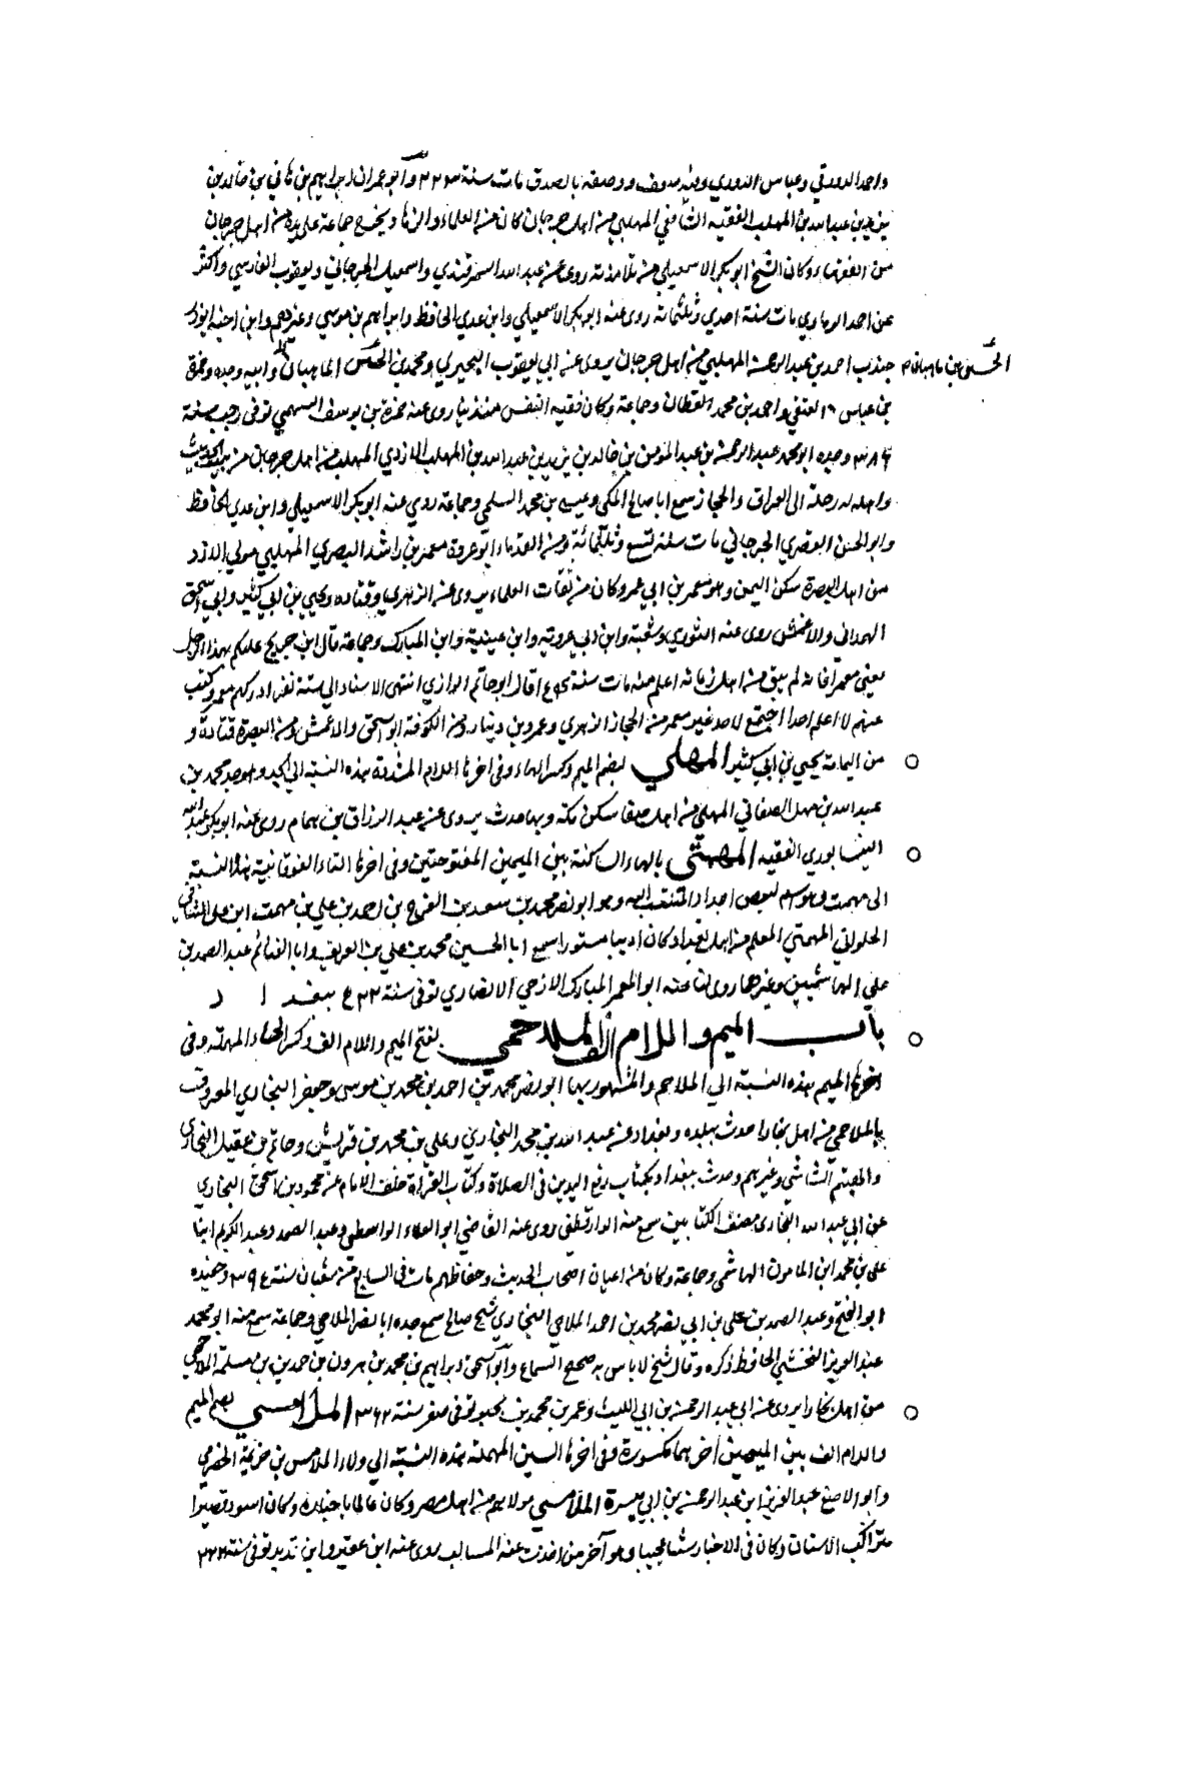 واحمد الدورقي وعباس الدوري وغيره ووصفه بالصدق مات سنة ٢٢٣ وابو عمران ابراهيم بن هاني بن خالد بن
يزيد بن عبد الله بن المهلب الفقيه الشافعي المهلبي من اهل جرجان كان من العلماء والزهاد ويخرج جماعة على يده من اهل جرجان
من الفقهاء وكان الشيخ ابو بكر الاسمعيلي من تلامذته روى عن عبد الله السمرقندي واسمعيل الجرجاني ويعقوب الفارسي واكثر
عن احمد الرمادي مات سنة احدي وثلثمائة روى عنه ابو بكر الاسمعيلي وابن عدي الحافظ وابراهيم بن موسي وغيرهم وابن اخيه ابو ذر
جندب احمد بن عبد الرحمن المهلبي من اهل جرجان يروى عن ابي يعقوب البحيري ومحمد بن الحسين الماهياني وابيه وجده
الحسين بن ماهيان
بن عباس العتقي واحمد بن محمد القطان وجماعة وكان فقيه النفس روى عنه حمزة بن يوسف السهمي توفى رجب سنة
٣٨٦ وجده ابو محمد عبد الرحمن بن عبد المؤمن بن خالد بن يزيد بن عبد الله بن المهلب الازدي المهلبي من اهل جرجان من بيت الحديث
واهله له رحلة الى العراق والحجاز سمع ابا صالح المكي وعيسى بن محمد السلمي وجماعة روي عنه ابو بكر الاسمعيلي وابن عدي الحافظ
وابو الحسن القصري الجرجاني مات سنة تسع وثلثمائة ومن القدماء ابو عروة معمر بن راشد البصري المهلبي مولي الازد
من اهل البصرة سكن اليمن وهو معمر بن ابي عمر وكان من ثقات العلماء يروى عن الزهري وقتاده ويحيي بن ابي كثير وابي اسحق
الهمداني والاعمش روى عنه الثوري وشعبة وابن ابي عروبة وابن عيينة وابن المبارك وجماعة قال ابن جريج عليكم بهذا الرجل
يعني معمرا فانه لم يبق من اهل زمانه اعلم منه مات سنة قال ابو حاتم الرازي انتهى الاسناد الي ستة نفر ادركهم معمر وكتب
عنهم لا اعلم احدا اجتمع لاحد غير معمر من الحجاز الزهري وعمرو بن دينار ومن الكوفة ابو اسحق والاعمش ومن البصرة قتادة و
من اليمامة يحيي بن ابي كثير المهلي بضم الميم وكسر الهاء وفى اخرها اللام المشددة هذه النسبة الي الجد وهو جد محمد بن
عبد الله بن مهل الصنعاني المهلي من اهل صنعا سكن مكة وبها حدث يروى عن عبد الرزاق بن همام روى عنه ابو بكر عبد الله
النيسابوري الفقيه المهمتي بالهاء الساكنة بين الميمين المفتوحتين وفى اخرها التاء الفوقانية هذا النسبة
الى مهمت وهو اسم لبعض اجداد المنتسب اليه وهو ابو نصر محمد بن سعد بن الفرج بن احمد بن علي بن مهمت ابن علي
الحلواني المهمتي المعلم من اهل بغداد كان اديبا مستورا سمع ابا الحسين محمد بن علي بن الغريق وابا الغنائم عبد الصمد بن
علي الهاشميين وغيرهما روى لنا عنه ابو المعمر المبارك الازجي الانصاري توفى سنة ببغداد
باب الميم واللام الف الملاحمي بفتح الميم واللام الف وكسر الحاء المهملة وفى
اخرها الميم هذه النسبة الي الملاحم والمشهور بها ابو نصر محمد بن احمد بن محمد بن موسى بن جعفر البخاري المعروف
بالملاحمي من اهل بخارا حدث ببلده وبغداد عن عبد الله بن محمد البخاري وعلي بن محمد بن قريش وحاتم بن عقيل البخاري
والهيثم الشاشي وغيرهم وحدث ببغداد بكتاب رفع اليدين فى الصلاة وكتاب القراة خلف الامام عن محمود بن اسحق البخاري
عن ابي عبد الله البخارى مصنف الكتابين سمع منه الدارقطني روى عنه القاضي ابو العلاء الواسطي وعبد الصمد وعبد الكريم ابنا
على بن محمد ابن المامون الهاشمي وجماعة وكان من اعيان اصحاب الحديث وحفاظهم مات فى السابع من شعبان سنة وحفيده
ابو الفتح وعبد الصمد بن علي بن ابي نصر محمد بن احمد الملاحمي البخاري شيخ صالح سمع جده ابا نصر الملاحمي وجماعة سمع منه ابو محمد
عبد العزيز النخشبي الحافظ ذكره وقال شيخ لا باس به صحيح السماع وابو اسحق ابراهيم بن محمد بن هرون بن حمدين بن مسلمة الملاحمي
من اهل بخارا يروى عن ابي عبد الرحمن بن ابي الليث وعمر بن محمد بن بجير توفى صفر سنة ٣٦٢ الملامسي بضم الميم
واللام الف بين الميمين اخرهما مكسورة وفى اخرها السين المهملة هذه النسبة الي ولاء الملامس بن خزيمة الحضرمي
وابو الاصبغ عبد العزيز ابن عبد الرحمن بن ابي ميسرة الملامسي مولاهم من اهل مصر وكان عالما باخبارها وكان اسود قصيرا
متراكب الاسنان وكان فى الاخبار شيا عجيبا وهو آخر من اخذت عنه المسالب روى عنه ابن عفير وابن قديد توفى سنة